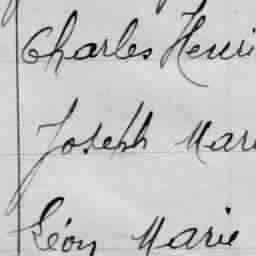 Charles Henri
Joseph Mari
Léon Marie